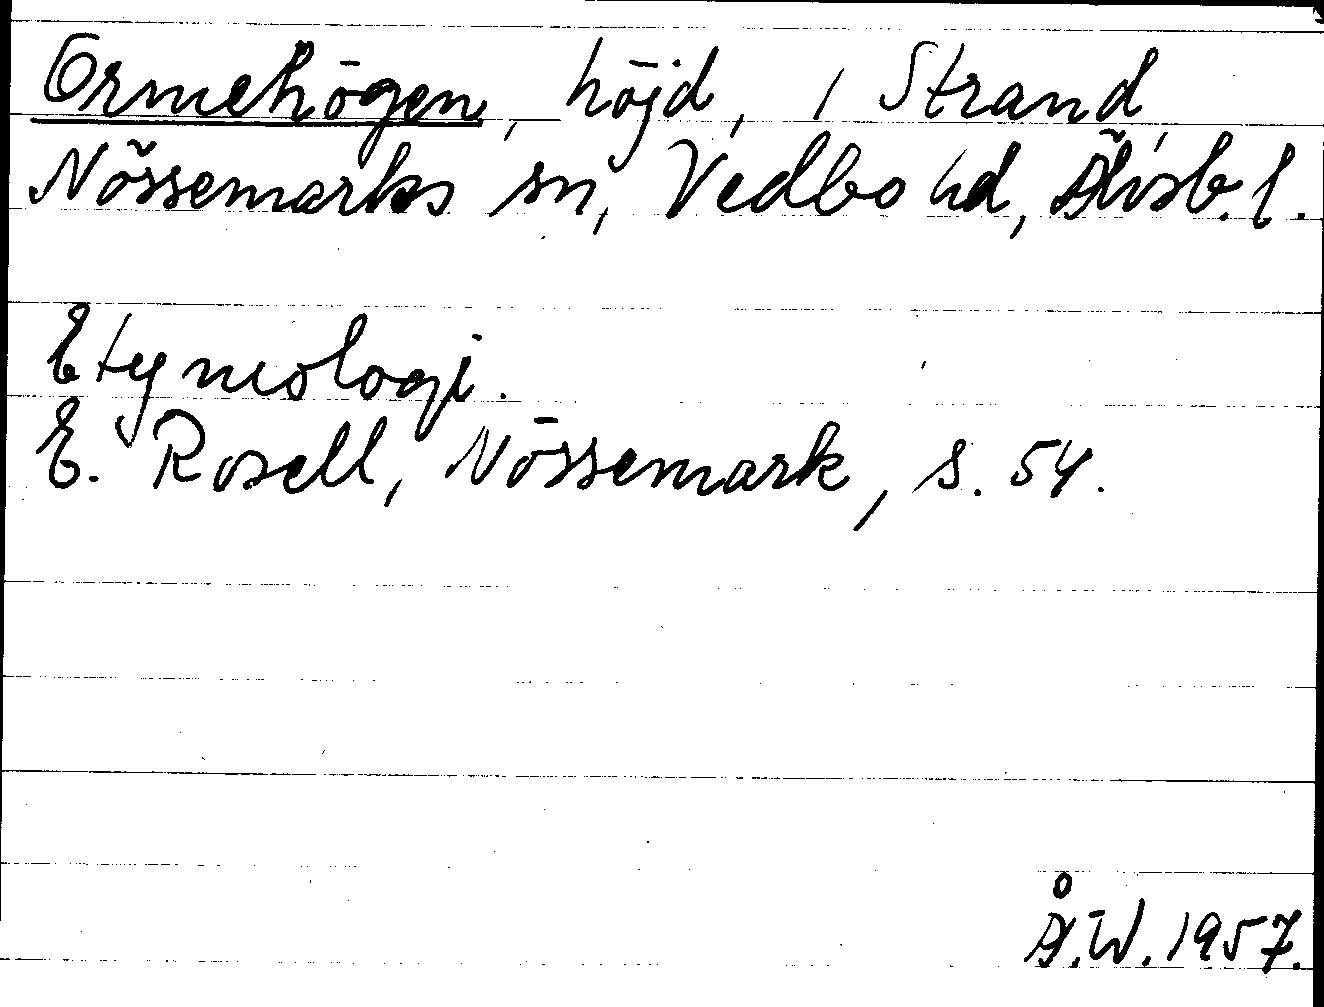 Ormehögen, höjd, i Strand,
Nössemarks sn, Vedbo hd, Älvsb. l.
Etymologi.
E. Rosell, Nössemark, s. 54.
Å.W. 1957.